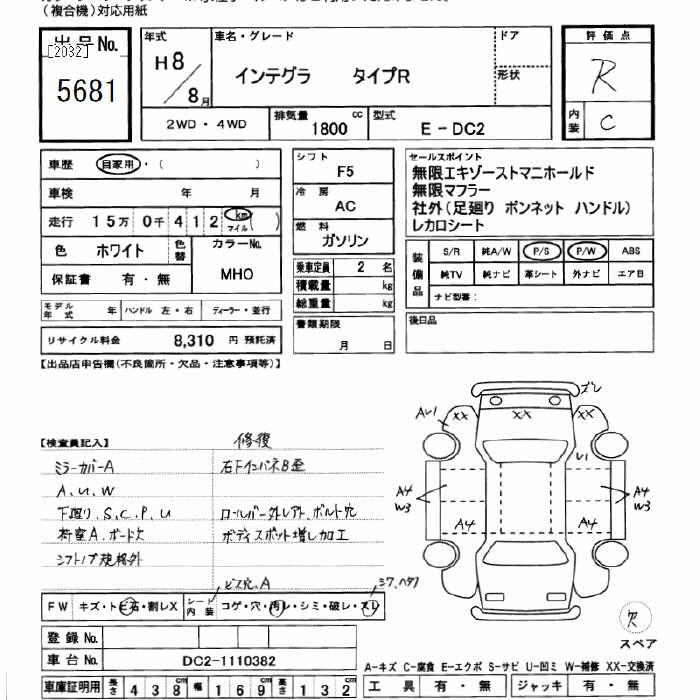 （複合機）対応用紙
出品No.
[2032]
5681
年式
H8/8月
車名・グレード
インテグラ タイプR
ドア
形状
評価点
R
内装 C
2WD・4WD
排気量 1800 cc
型式 E-DC2
車歴 自家用・（ ）
車検 年 月
走行 15万 0千 412 km マイル ( )
色 ホワイト
色替
カラーNo. MHO
保証書 有・無
モデル年式 年
ハンドル 左・右
ディーラー・並行
リサイクル料金 8,310 円 預託済
シフト F5
冷房 AC
燃料 ガソリン
乗車定員 2 名
積載量 kg
総重量 kg
書類期限 月 日
セールスポイント
無限エキゾーストマニホールド
無限マフラー
社外(足廻り ボンネット ハンドル)
レカロシート
装備品
S/R 純A/W P/S P/W ABS
純TV 純ナビ 革シート 外ナビ エアB
ナビ型番:
後日品
【出品店申告欄(不良箇所・欠品・注意事項等)】
【検査員記入】
修復
ミラーカバーA
右FインパネB歪
A,U,W
下廻り,S,C,P,U
ロールバー外レアト、ボルト穴
荷室A、ボード欠
ボディスポット増し加工
シフトノブ規格外
ビス穴,A
シワ,ヘタリ
FW キズ・トビ石・割レX
シート内装 コゲ・穴・汚レ・シミ・破レ・スレ
登録No.
車台No. DC2-1110382
車庫証明用 長さ 438cm 幅 169cm 高さ 132cm
ズレ
AU1
XX
XX
XX
U1
A4
W3
A4
W3
A4
A4
欠
スペア
A-キズ C-腐食 E-エクボ S-サビ U-凹ミ W-補修 XX-交換済
工具 有・無 ジャッキ 有・無